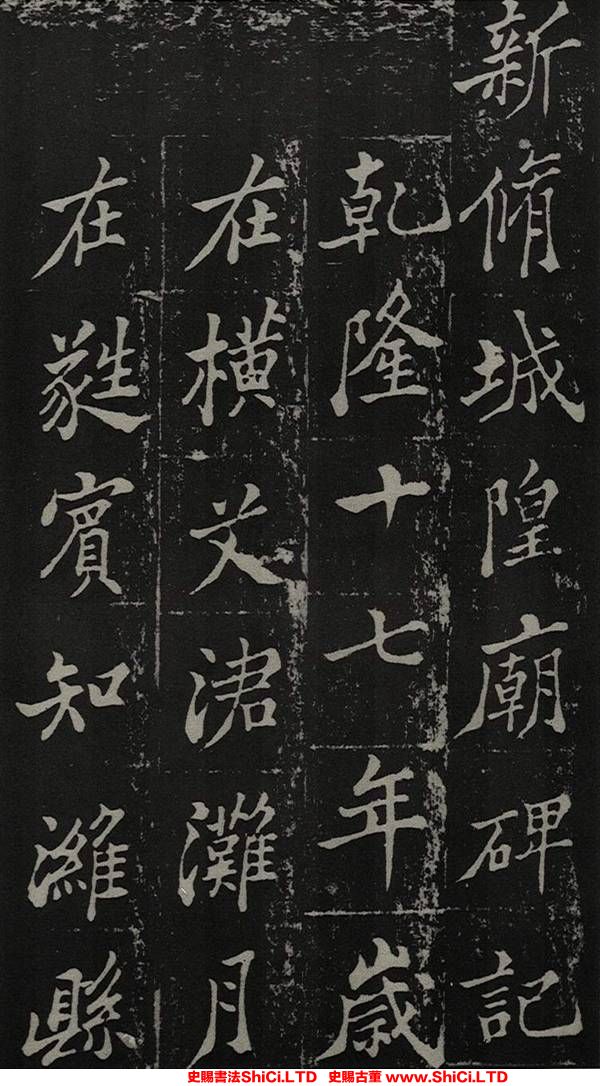 新脩城隍廟碑記
乾隆十七年歲
在橫艾涒灘月
在蕤賓知濰縣
史賜書法ShiCi.LTD 史賜古董 www.ShiCi.LTD